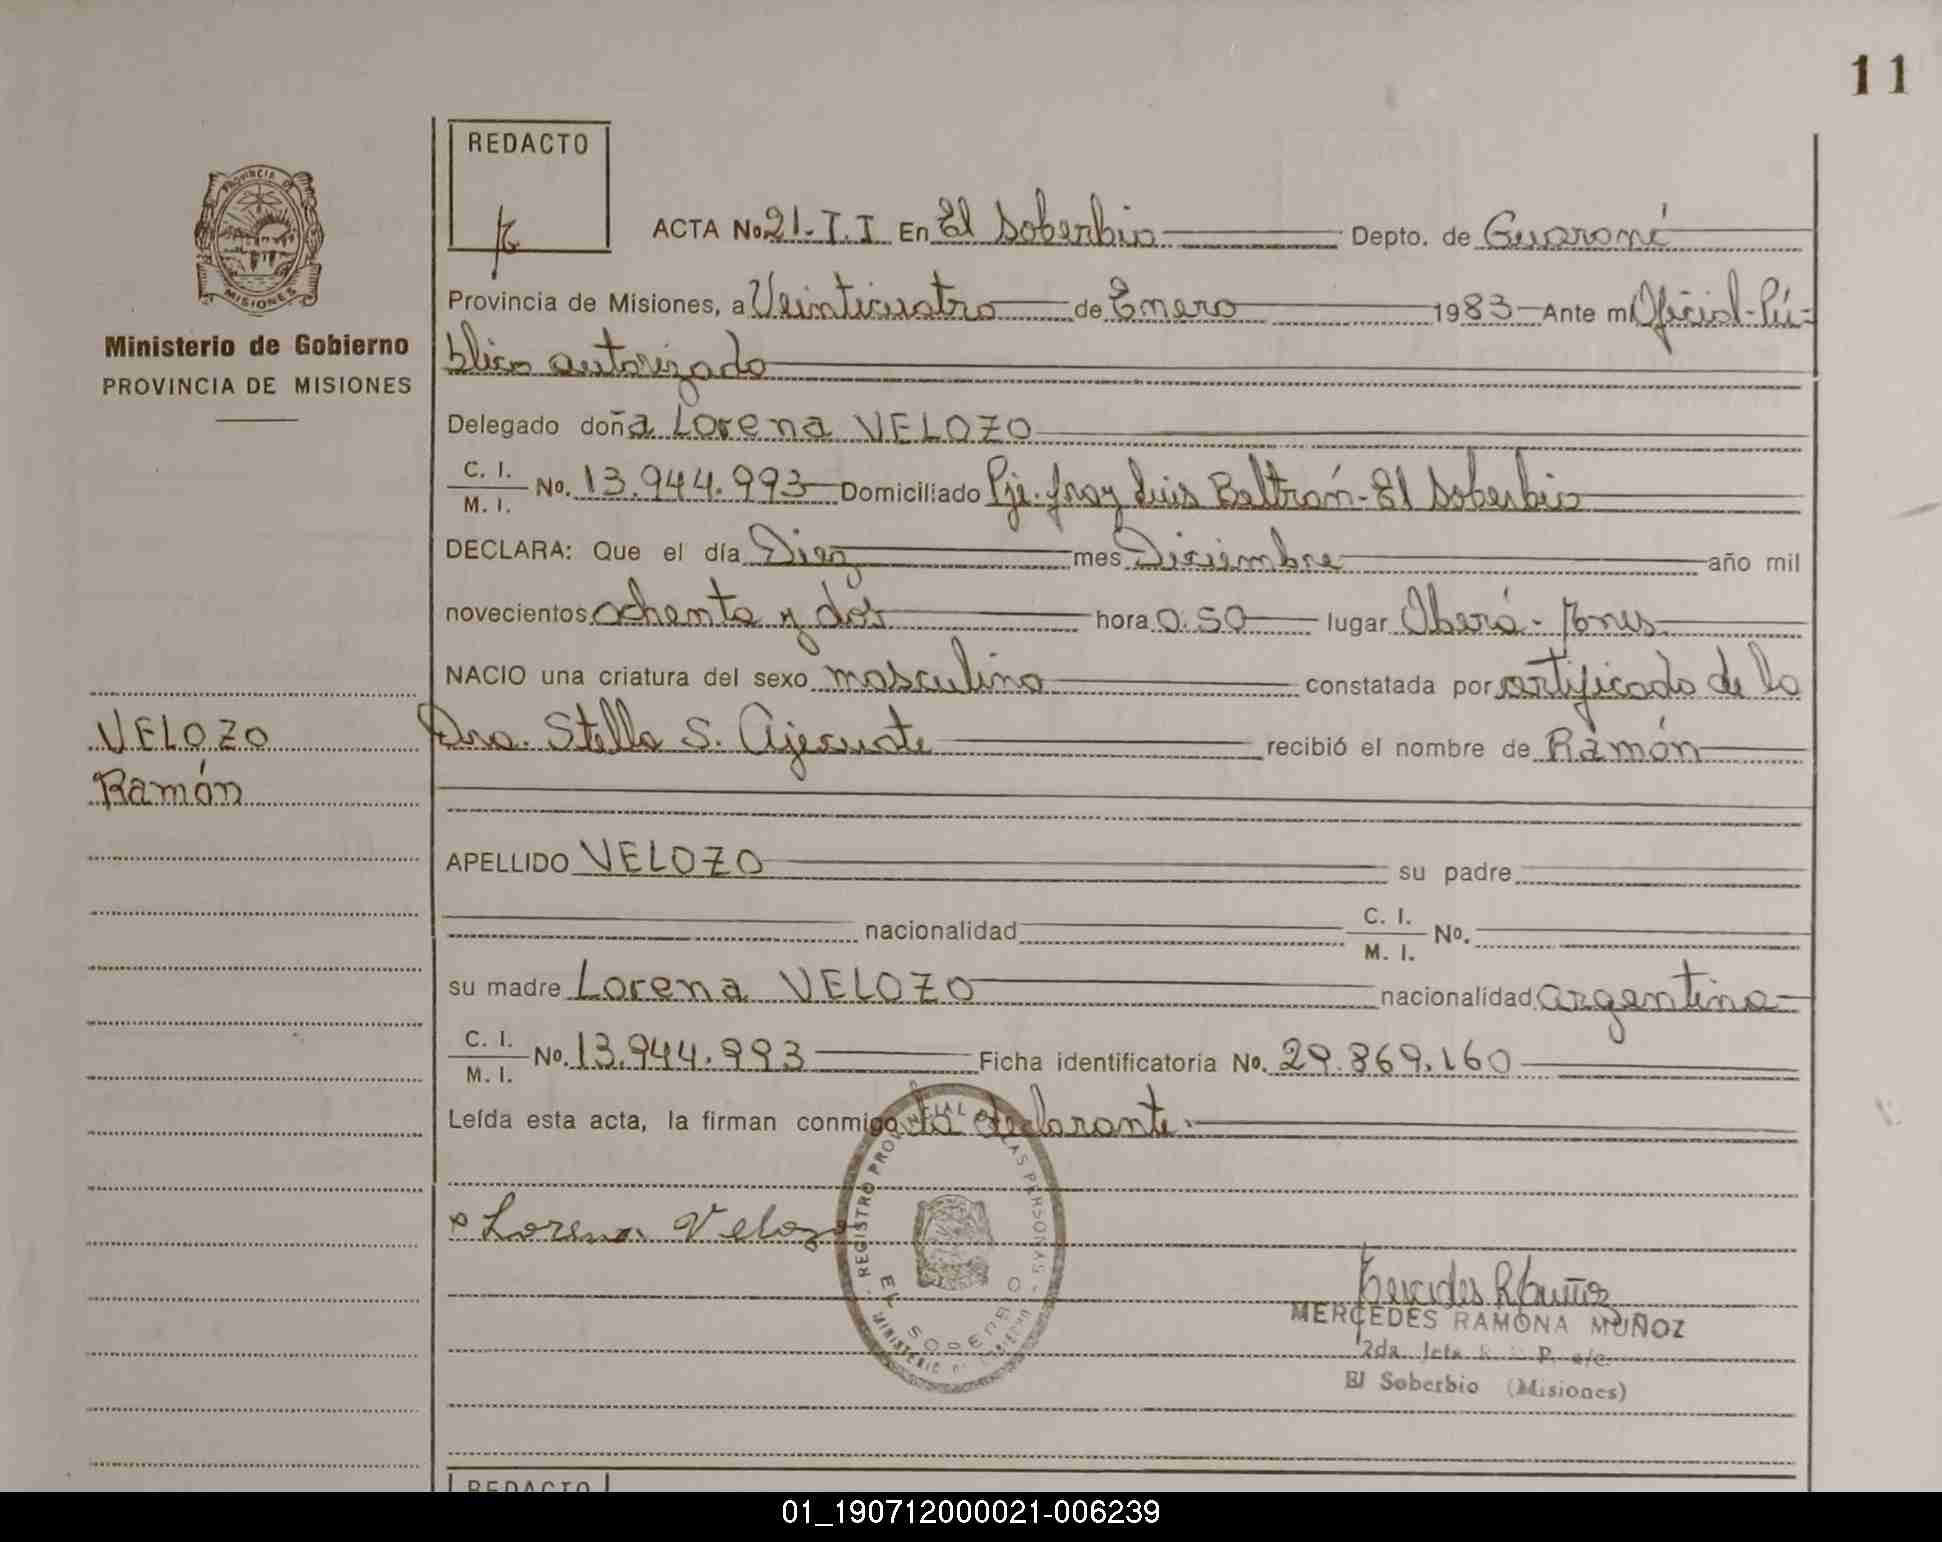 11
REDACTO
PROVINCIA DE
MISIONES
Ministerio de Gobierno
PROVINCIA DE MISIONES
ACTA No. 21-I.I En El Soberbio Depto. de Guaraní
Provincia de Misiones, a Veinticuatro de Enero 1983 Ante mí Oficial-Pú-
blico autorizado
Delegado doña Lorena VELOZO
C. I.
M. I. No. 13.944.993 Domiciliado Pje. Fray Luis Beltrán-El Soberbio
DECLARA: Que el día Diez mes Diciembre año mil
novecientos ochenta y dós hora 0.50 lugar Oberá-
NACIO una criatura del sexo masculino constatada por certificado de la
Dra. Stella S. recibió el nombre de Ramón
VELOZO
Ramón
APELLIDO VELOZO su padre
nacionalidad C. I.
M. I. No.
su madre Lorena VELOZO nacionalidad argentina
C. I.
M. I. No. 13.944.993 Ficha identificatoria No. 29.869.160
Leída esta acta, la firman conmigo la declarante.
REGISTRO PROVINCIAL DE LAS PERSONAS
Lorena Velozo
Mercedes R Muñoz
MERCEDES RAMONA MUÑOZ
2da. Jefa
El Soberbio (Misiones)
REDACTO
01_190712000021-006239